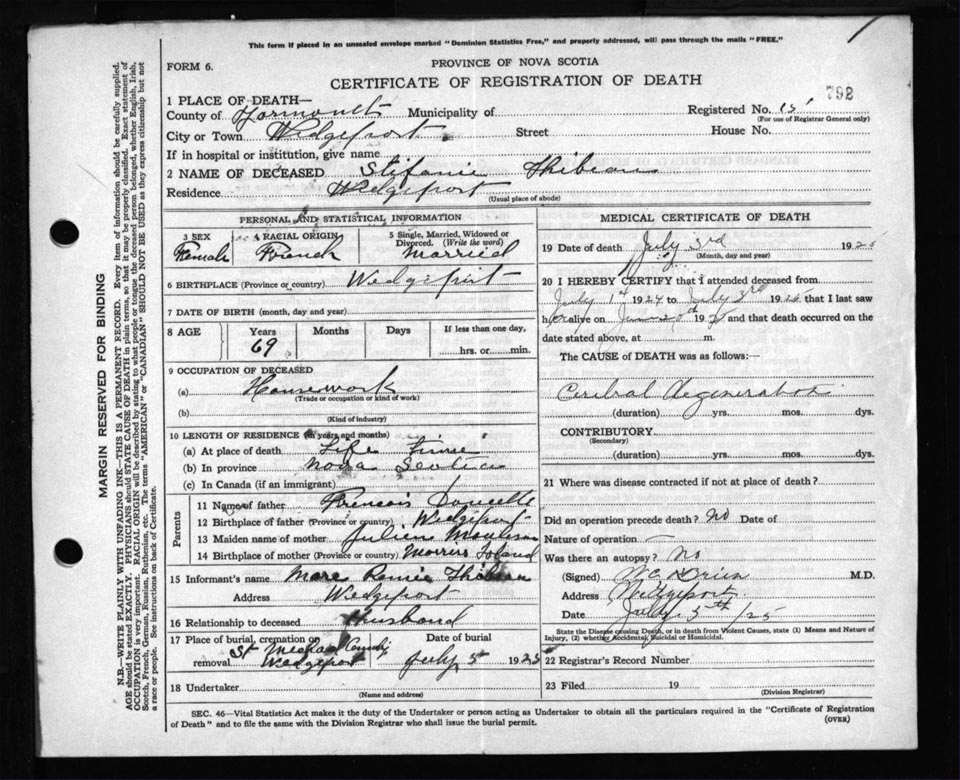 This form if placed in an unsealed envelope marked "Dominion Statistics Free," and properly addressed, will pass through the mails "FREE."
FORM 6.
PROVINCE OF NOVA SCOTIA
CERTIFICATE OF REGISTRATION OF DEATH
792
1 PLACE OF DEATH—
County of Yarmouth Municipality of Registered No. 15
(For use of Registrar General only)
City or Town Wedgeport Street House No.
If in hospital or institution, give name
2 NAME OF DECEASED Stefanie Thibeau
Residence Wedgeport
(Usual place of abode)
PERSONAL AND STATISTICAL INFORMATION
3 SEX 4 RACIAL ORIGIN 5 Single, Married, Widowed or Divorced. (Write the word)
Female French Married
6 BIRTHPLACE (Province or country) Wedgeport
7 DATE OF BIRTH (month, day and year)
8 AGE Years Months Days If less than one day,
69 hrs. or min.
9 OCCUPATION OF DECEASED
(a) Housework
(Trade or occupation or kind of work)
(b)
(Kind of industry)
10 LENGTH OF RESIDENCE (in years and months)
(a) At place of death Life Time
(b) In province Nova Scotia
(c) In Canada (if an immigrant)
Parents
11 Name of father Doucette
12 Birthplace of father (Province or country) Wedgeport
13 Maiden name of mother Moulison
14 Birthplace of mother (Province or country) Morris Island
15 Informant's name Marc Thibeau
Address Wedgeport
16 Relationship to deceased Husband
17 Place of burial, cremation or removal St Wedgeport
Date of burial July 5 1925
18 Undertaker
(Name and address)
MEDICAL CERTIFICATE OF DEATH
19 Date of death July 3rd 1925
(Month, day and year)
20 I HEREBY CERTIFY that I attended deceased from
July 1st 1924 to July 192 that I last saw
her alive on 19 and that death occurred on
date stated above, at m.
The CAUSE of DEATH was as follows:
Cerebral Degeneration
(duration) yrs. mos. dys.
CONTRIBUTORY
(Secondary)
(duration) yrs. mos. dys.
21 Where was disease contracted if not at place of death?
Did an operation precede death? No Date of
Nature of operation —
Was there an autopsy? No
(Signed) M.D.
Address Wedgeport
Date July 5th/25
State the Disease causing Death, or in death from Violent Causes, state (1) Means and Nature of
Injury, (2) whether Accidental, Suicidal or Homicidal.
22 Registrar's Record Number
23 Filed 19
(Division Registrar)
SEC. 46—Vital Statistics Act makes it the duty of the Undertaker or person acting as Undertaker to obtain all the particulars required in the "Certificate of Registration
of Death" and to file the same with the Division Registrar who shall issue the burial permit.
(OVER)
MARGIN RESERVED FOR BINDING
N.B.—WRITE PLAINLY WITH UNFADING INK—THIS IS A PERMANENT RECORD. Every item of information should be carefully supplied.
AGE should be stated EXACTLY. PHYSICIANS should STATE CAUSE OF DEATH in plain terms, so that it may be properly classified. Exact statement of
OCCUPATION is very important. RACIAL ORIGIN will be described by stating to what people or tongue the deceased person belonged, whether English, Irish,
Scotch, French, German, Russian, Ruthenian, etc. The terms "AMERICAN" or "CANADIAN" SHOULD NOT BE USED as they express citizenship but not
a race or people. See instructions on back of Certificate.